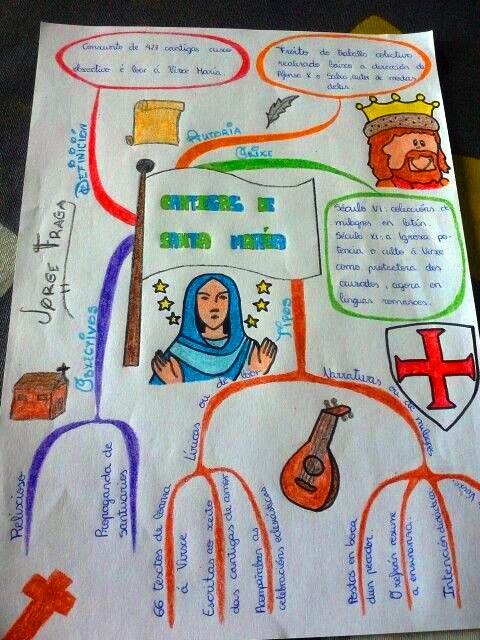 Conxunto de 427 cantigas cuxo
obxectivo é loar á Virxe María
Froito do traballo colectivo
realizado baixo a dirección de
Alfonso X o Sabio, autor de moitas
delas
DEFINICIÓN
AUTORÍA
ORIXE
CANTIGAS DE
SANTA MARÍA
Século VI: coleccións de
milagres en latín.
Século XI: a Igrexa po-
tencia o culto á Virxe
como protectora dos
cruzados, agora en
linguas romances.
JORGE FRAGA
OBXECTIVOS
Relixioso
Propaganda de
santuarios
TIPOS
Líricas ou de loor
66 textos de loanza
á Virxe
Escritas ao xeito
das cantigas de amor
Acompañaban as
celebracións eclesiásticas
Narrativas ou de milagres
Postas en boca
dun pecador
O refrán resume
a ensinanza.
Intención didáctica